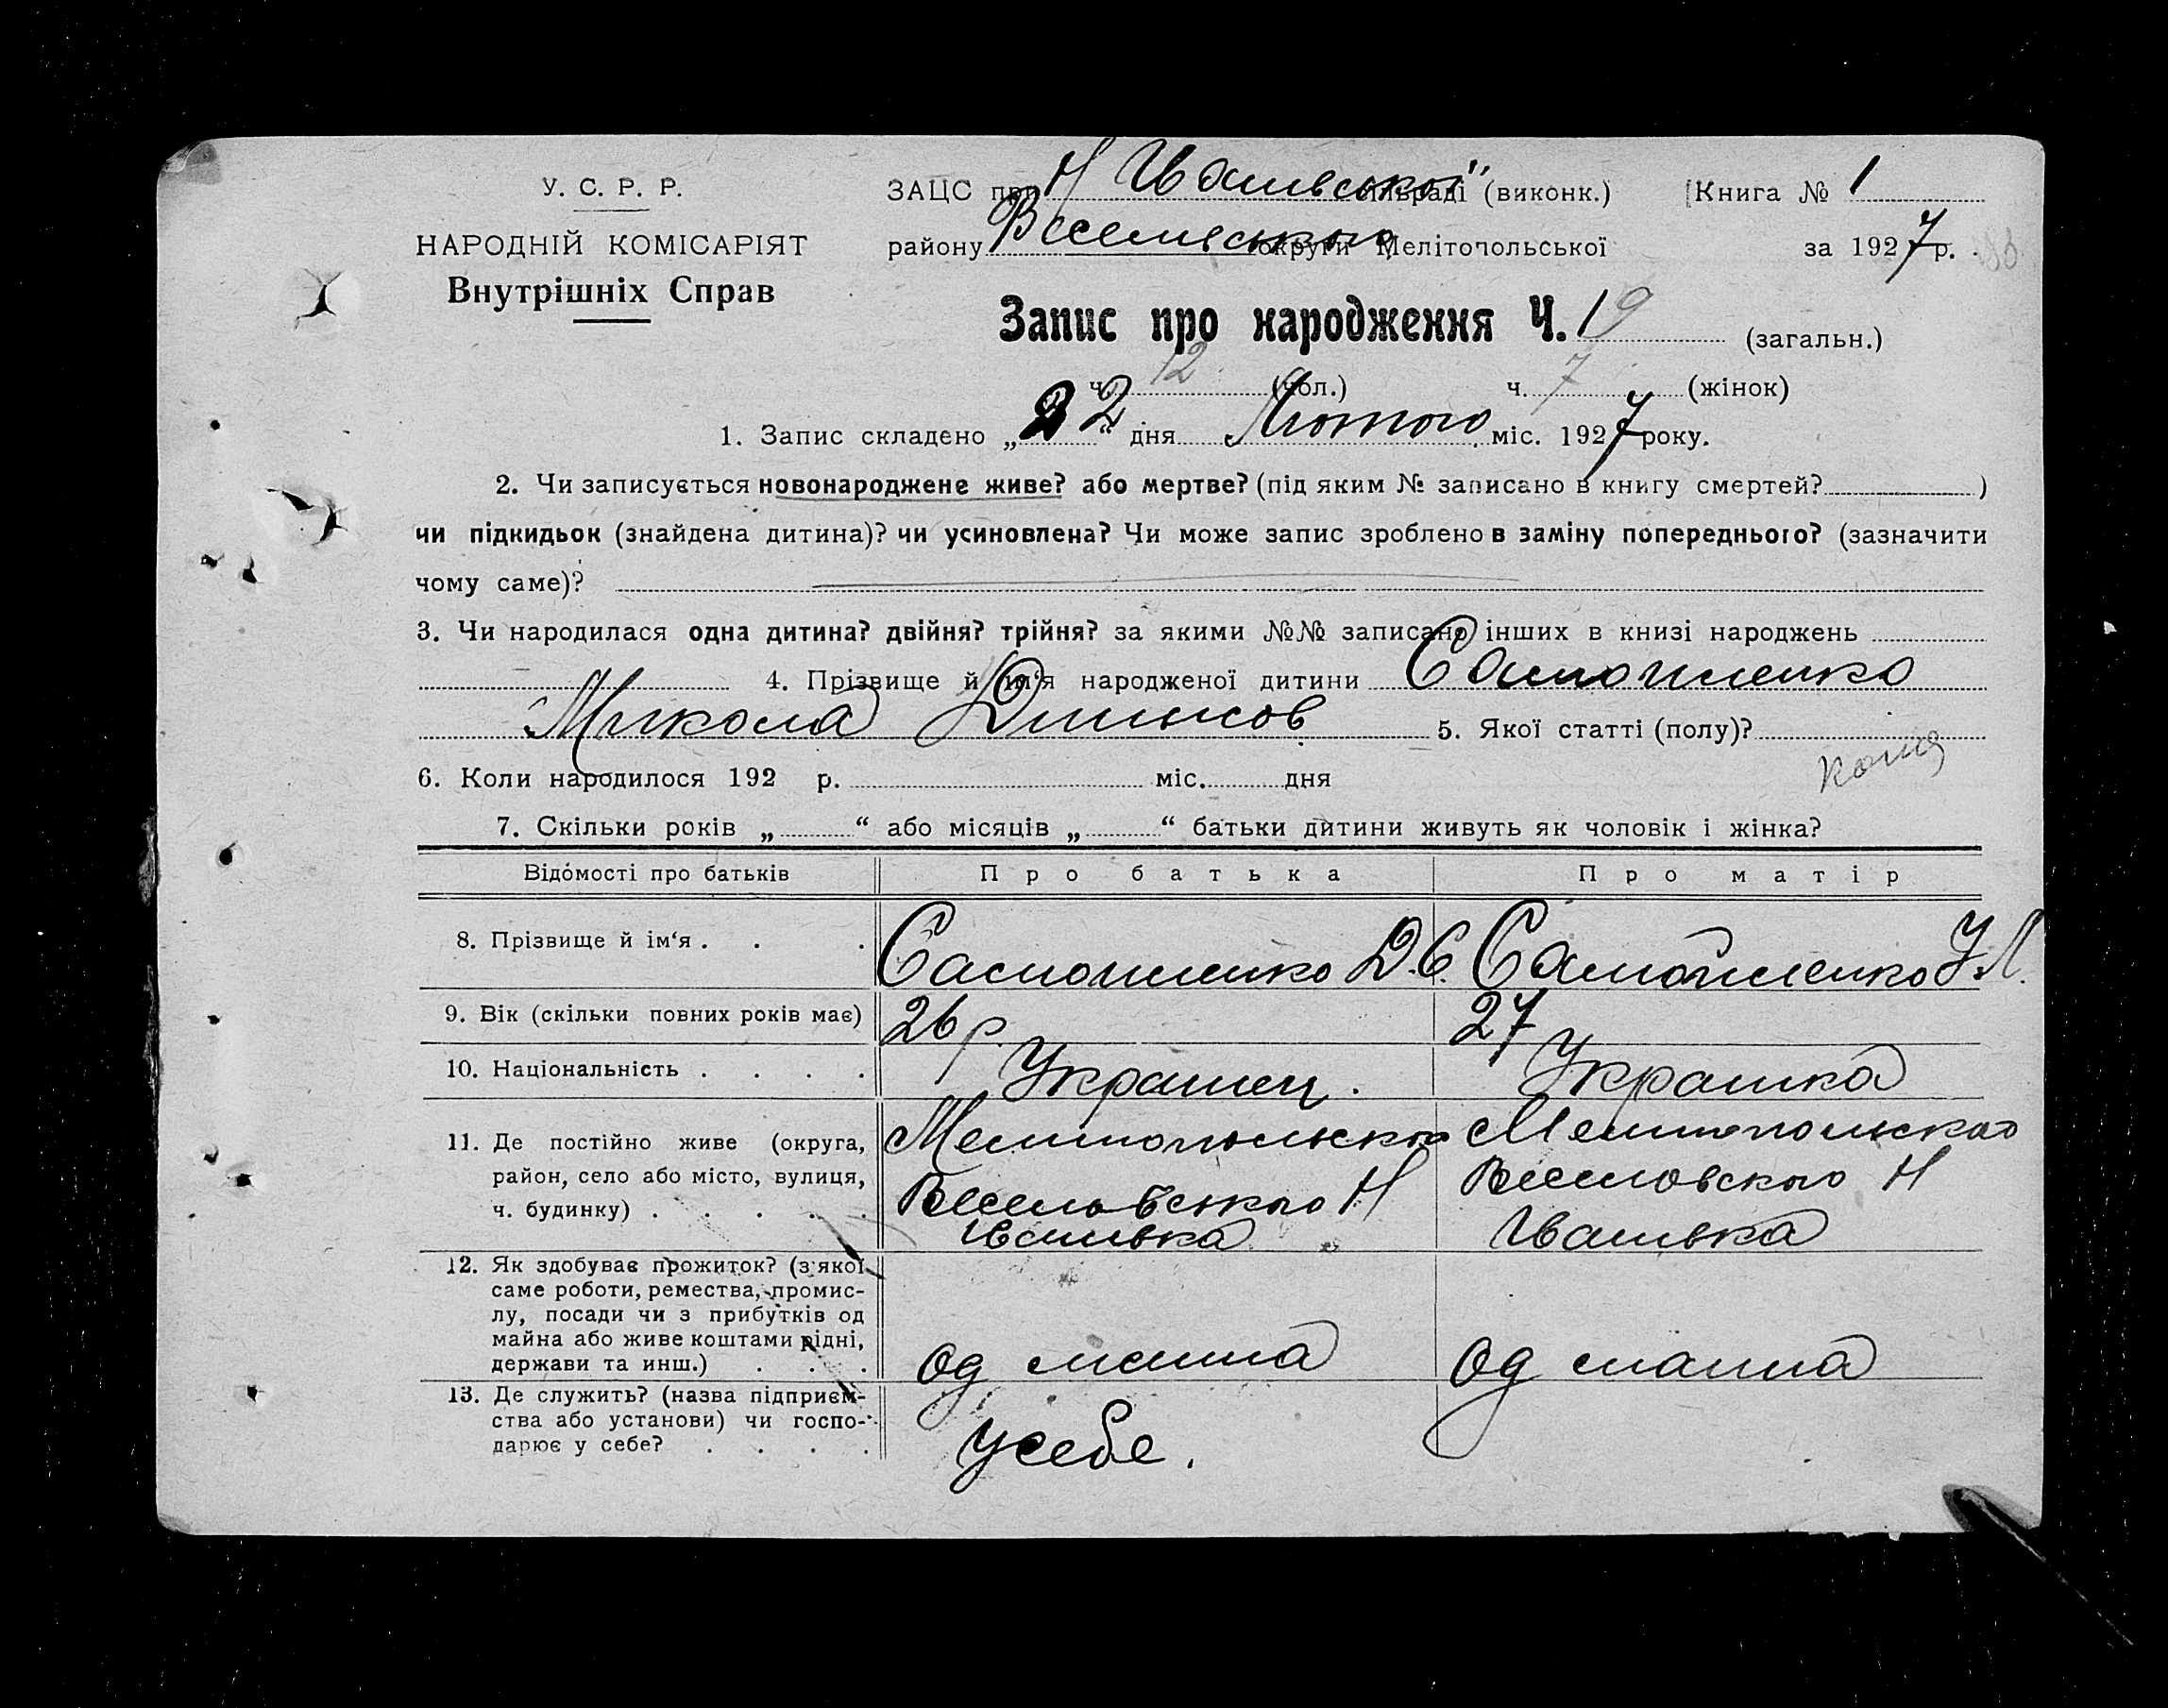 У. С. Р. Р.
НАРОДНІЙ КОМІСАРІЯТ
Внутрішніх Справ
ЗАЦС при Н Іванівської сільраді (виконк.)
Книга № 1
району Веселівського округи Мелітопольської
за 1927 р.
Запис про народження Ч. 19 (загальн.)
ч. 12 (чол.) ч. 7 (жінок)
1. Запис складено „22“ дня Лютого міс. 1927 року.
2. Чи записується новонароджене живе? або мертве? (під яким № записано в книгу смертей? )
чи підкидьок (знайдена дитина)? чи усиновлена? Чи може запис зроблено в заміну попереднього? (зазначити
чому саме)?
3. Чи народилася одна дитина? двійня? трійня? за якими №№ записано інших в книзі народжень
4. Прізвище й ім‘я народженої дитини Самойленко
Микола 5. Якої статті (полу)?
6. Коли народилося 192 р. міс. дня
7. Скільки років „ “ або місяців „ “ батьки дитини живуть як чоловік і жінка?
Відомості про батьків Про батька Про матір
8. Прізвище й ім‘я . . . Самойленко Д. С. Самойленко У Л.
9. Вік (скільки повних років має) 26 р. 27
10. Національність . . . . Украинец. Украинка
11. Де постійно живе (округа,
район, село або місто, вулиця,
ч. будинку) . . . . .
Веселовського Н
Іванивка
Веселовского Н
Іванивка
12. Як здобуває прожиток? (з якої
саме роботи, ремества, промис-
лу, посади чи з прибутків од
майна або живе коштами рідні,
держави та инш.) . . .
од маина
од маина
13. Де служить? (назва підприєм-
ства або установи) чи госпо-
дарює у себе? . . . .
у себе.